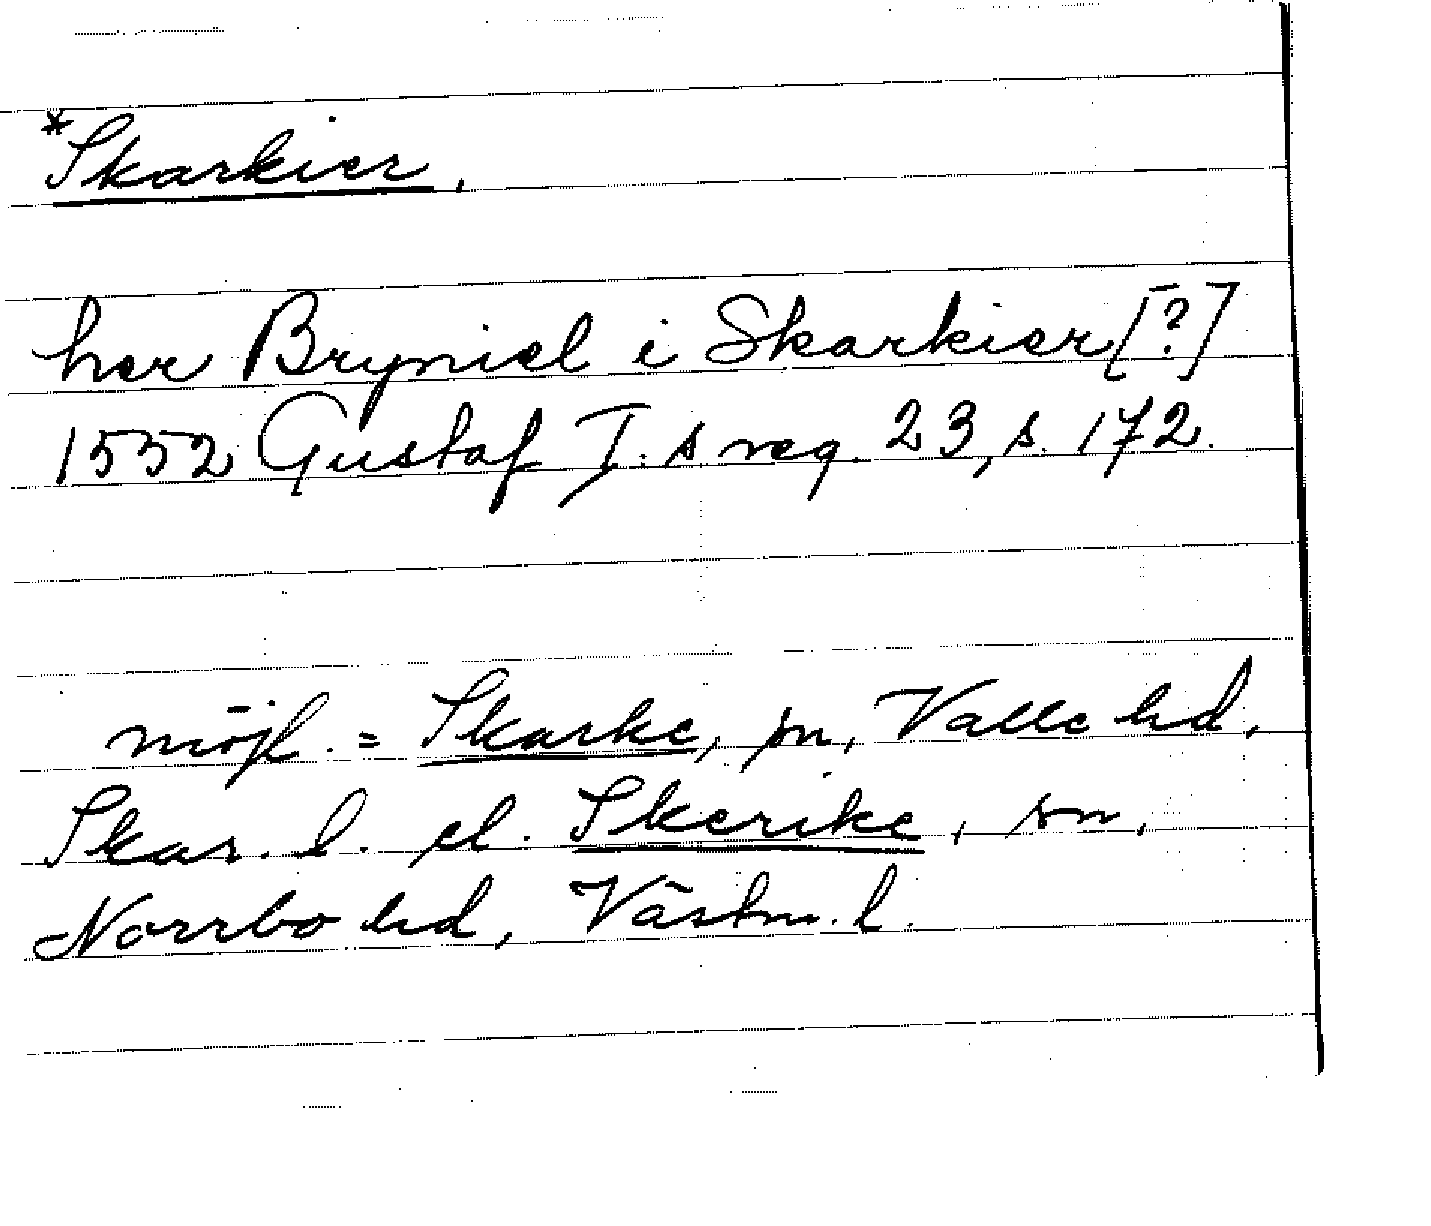 *Skarkier.
her Bryniel i Skarkier [?]
1552 Gustaf I.s reg. 23, s. 172.
möjl. = Skarke, sn, Valle hd,
Skar. l. el. Skerike, sn,
Norrbo hd, Västm. l.